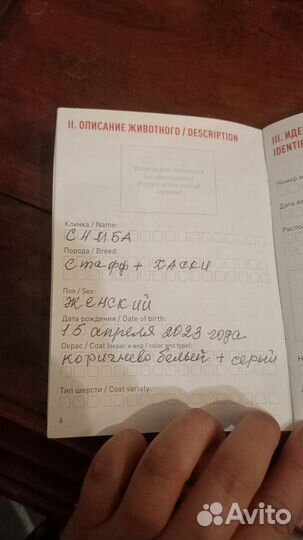 II. ОПИСАНИЕ ЖИВОТНОГО / DESCRIPTION
Фотография животного
(по желанию) /
Picture of the animal
(optional)
Кличка / Name:
СИМБА
Порода / Breed:
Стафф + ХАСКИ
Пол / Sex:
ЖЕНСКИЙ
Дата рождения / Date of birth:
15 апреля 2023 года
Окрас / Coat (окрас и вид / color and type):
коричнево белый + серый
Тип шерсти / Coat variaty:
6
III. ИДЕ
IDENTIF
Номер м
Дата вв
Распол
Avito